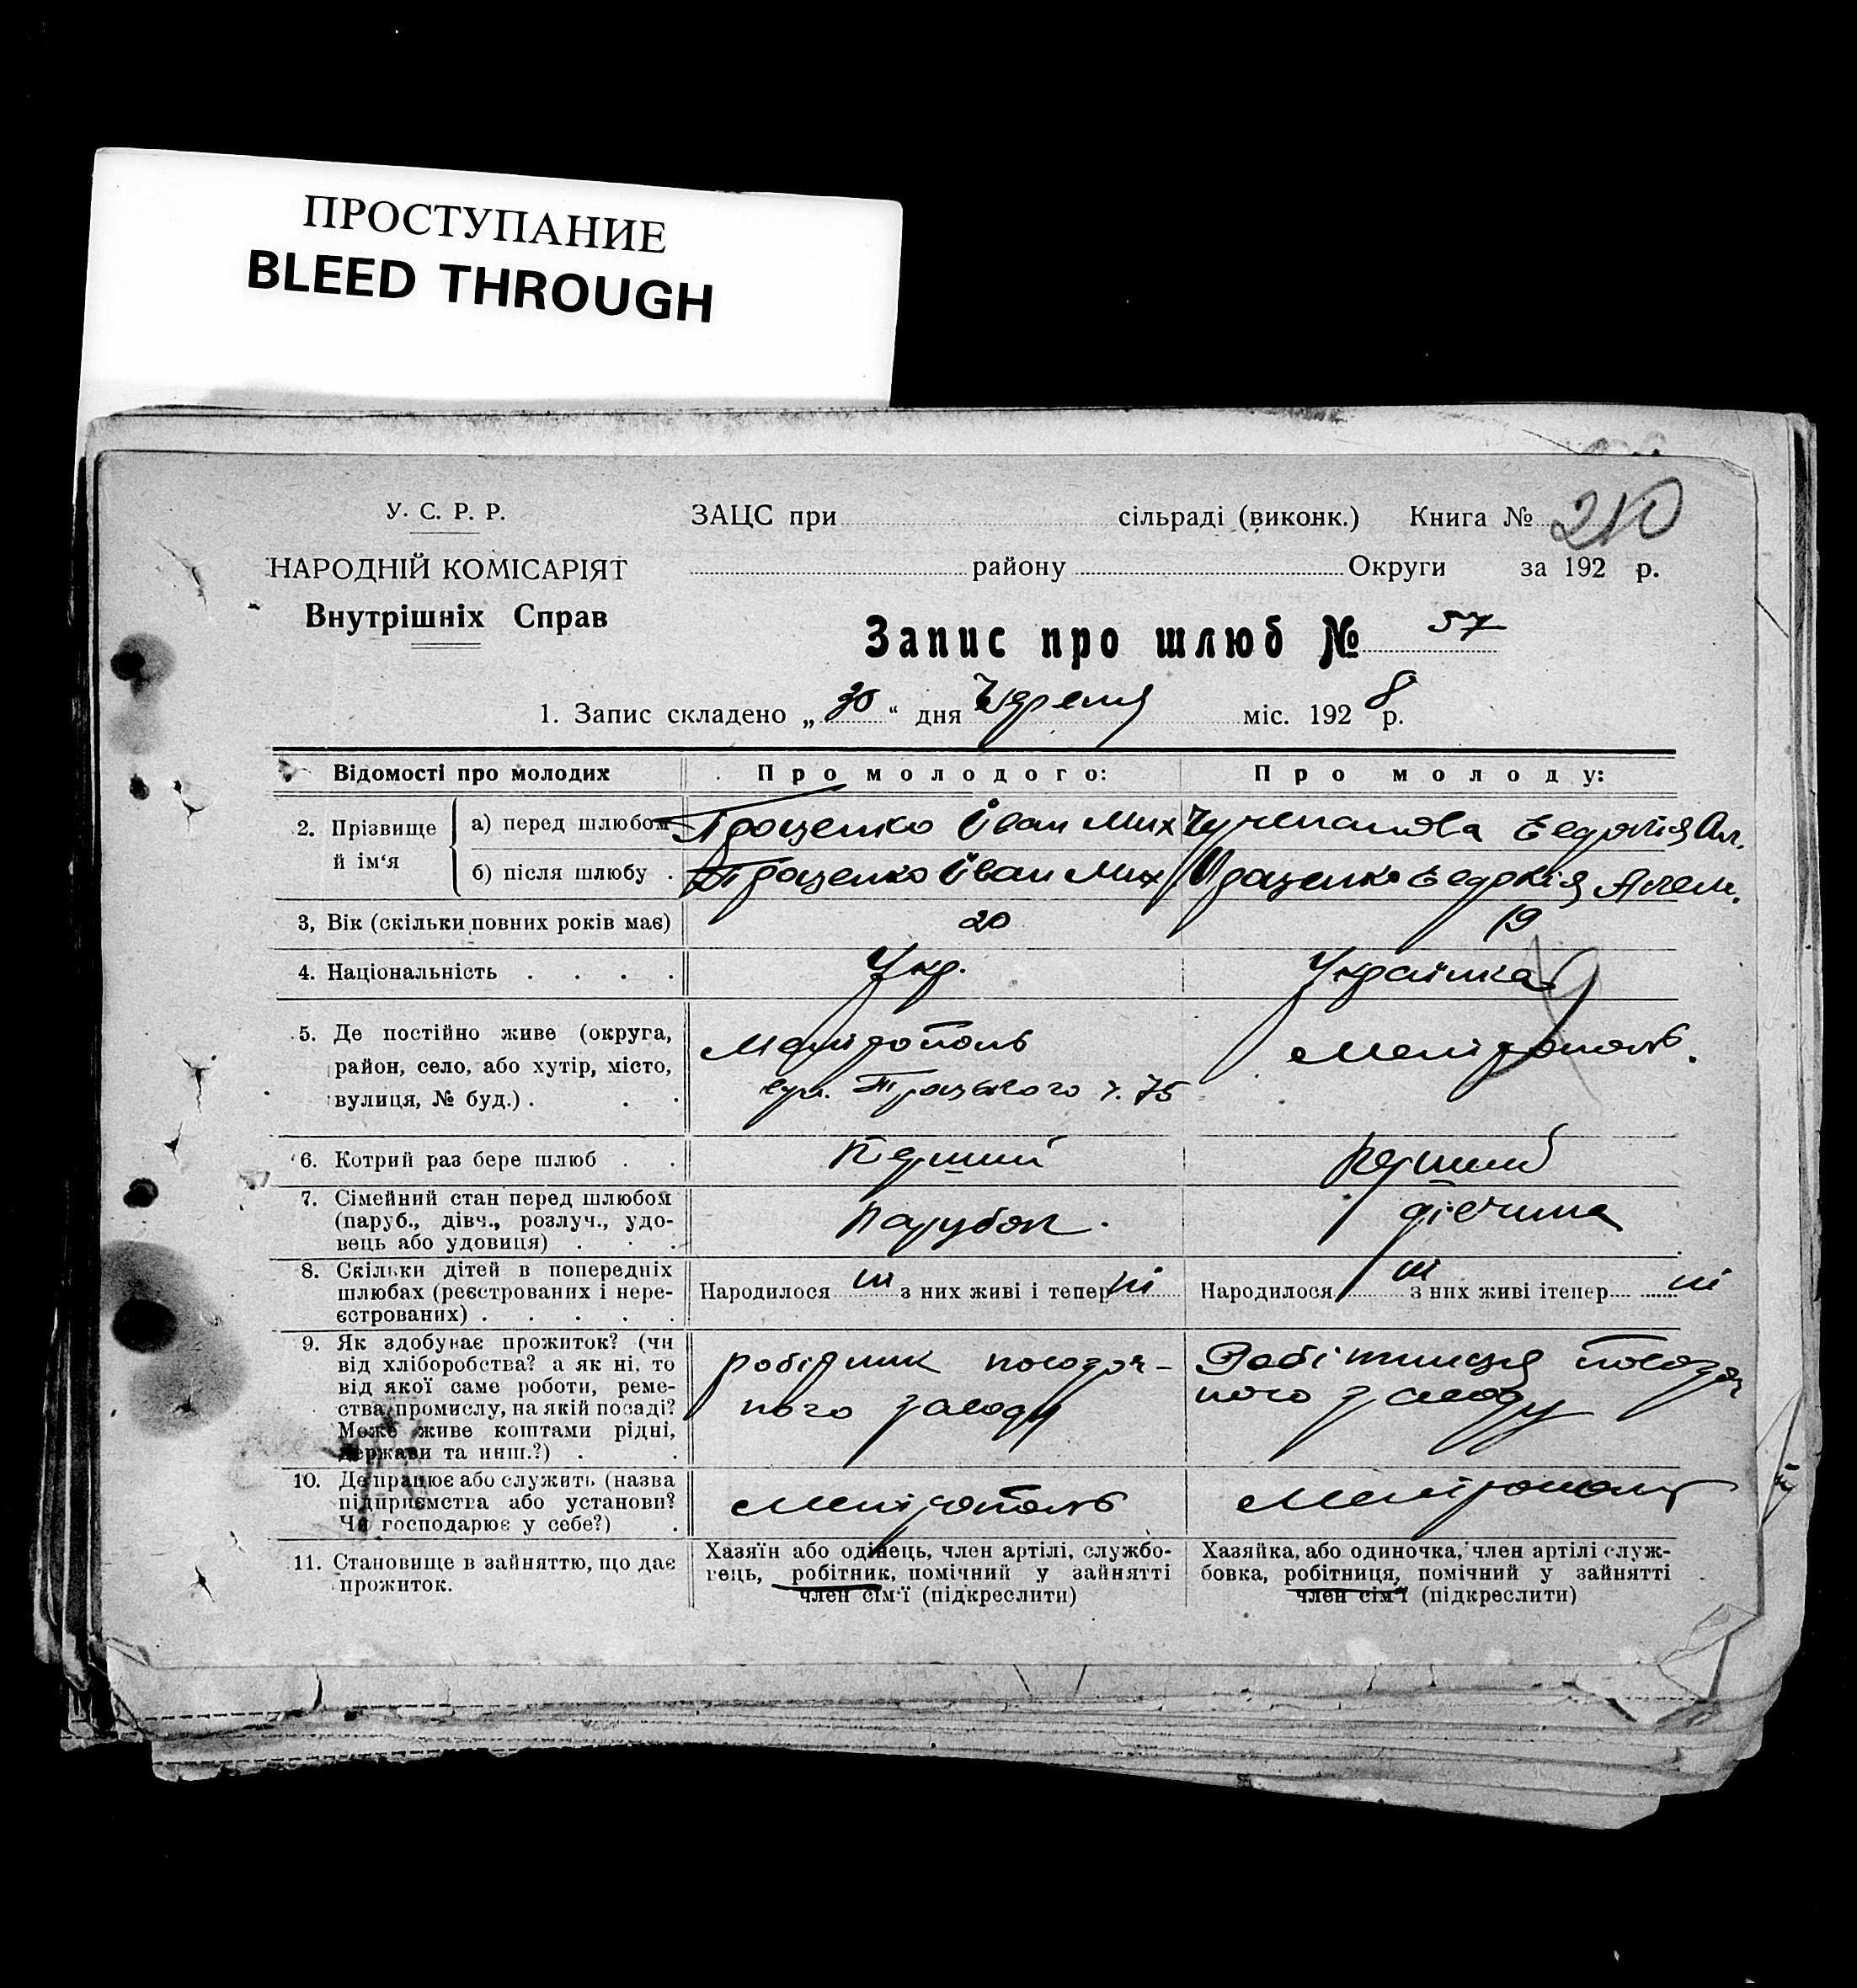 ПРОСТУПАНИЕ
BLEED THROUGH
У. С. Р. Р.
НАРОДНІЙ КОМІСАРІЯТ
Внутрішніх Справ
ЗАЦС при сільраді (виконк.) Книга №
210
району Округи за 192 р.
Запис про шлюб № 57
1. Запис складено „30“ дня Червня міс. 1928 р.
Відомості про молодих
Про молодого:
Про молоду:
2. Прізвище й ім‘я
а) перед шлюбом
Проценко Іван Мих
Евдокія Ол.
б) після шлюбу .
Проценко Іван Мих
Проценко Евдокія
3, Вік (скільки повних років має)
20
19
4. Національність . . . .
Укр.
Українка
5. Де постійно живе (округа,
район, село, або хутір, місто,
вулиця, № буд.) . . .
Мелітополь
вул. Троцького ч. 75
Мелітополь.
6. Котрий раз бере шлюб . .
Перший
перший
7. Сімейний стан перед шлюбом
(паруб., дівч., розлуч., удо-
вець або удовиця) . . .
парубок.
дівчина
8. Скільки дітей в попередніх
шлюбах (реєстрованих і нере-
єстрованих) . . . . .
Народилося ні з них живі і тепер ні
Народилося ні з них живі ітепер ні
9. Як здобуває прожиток? (чи
від хліборобства? а як ні, то
від якої саме роботи, реме-
ства, промислу, на якій посаді?
Може живе коштами рідні,
держави та инш.?) . .
робітник
Робітниця
10. Де працює або служить (назва
підприємства або установи?
Чи господарює у себе?) .
Мелітополь
Мелітополь
11. Становище в зайняттю, що дає
прожиток.
Хазяїн або одінець, член артілі, службо-
вець, робітник, помічний у зайнятті
член сім‘ї (підкреслити)
Хазяйка, або одиночка, член артілі служ-
бовка, робітниця, помічний у зайнятті
член сім‘ї (підкреслити)